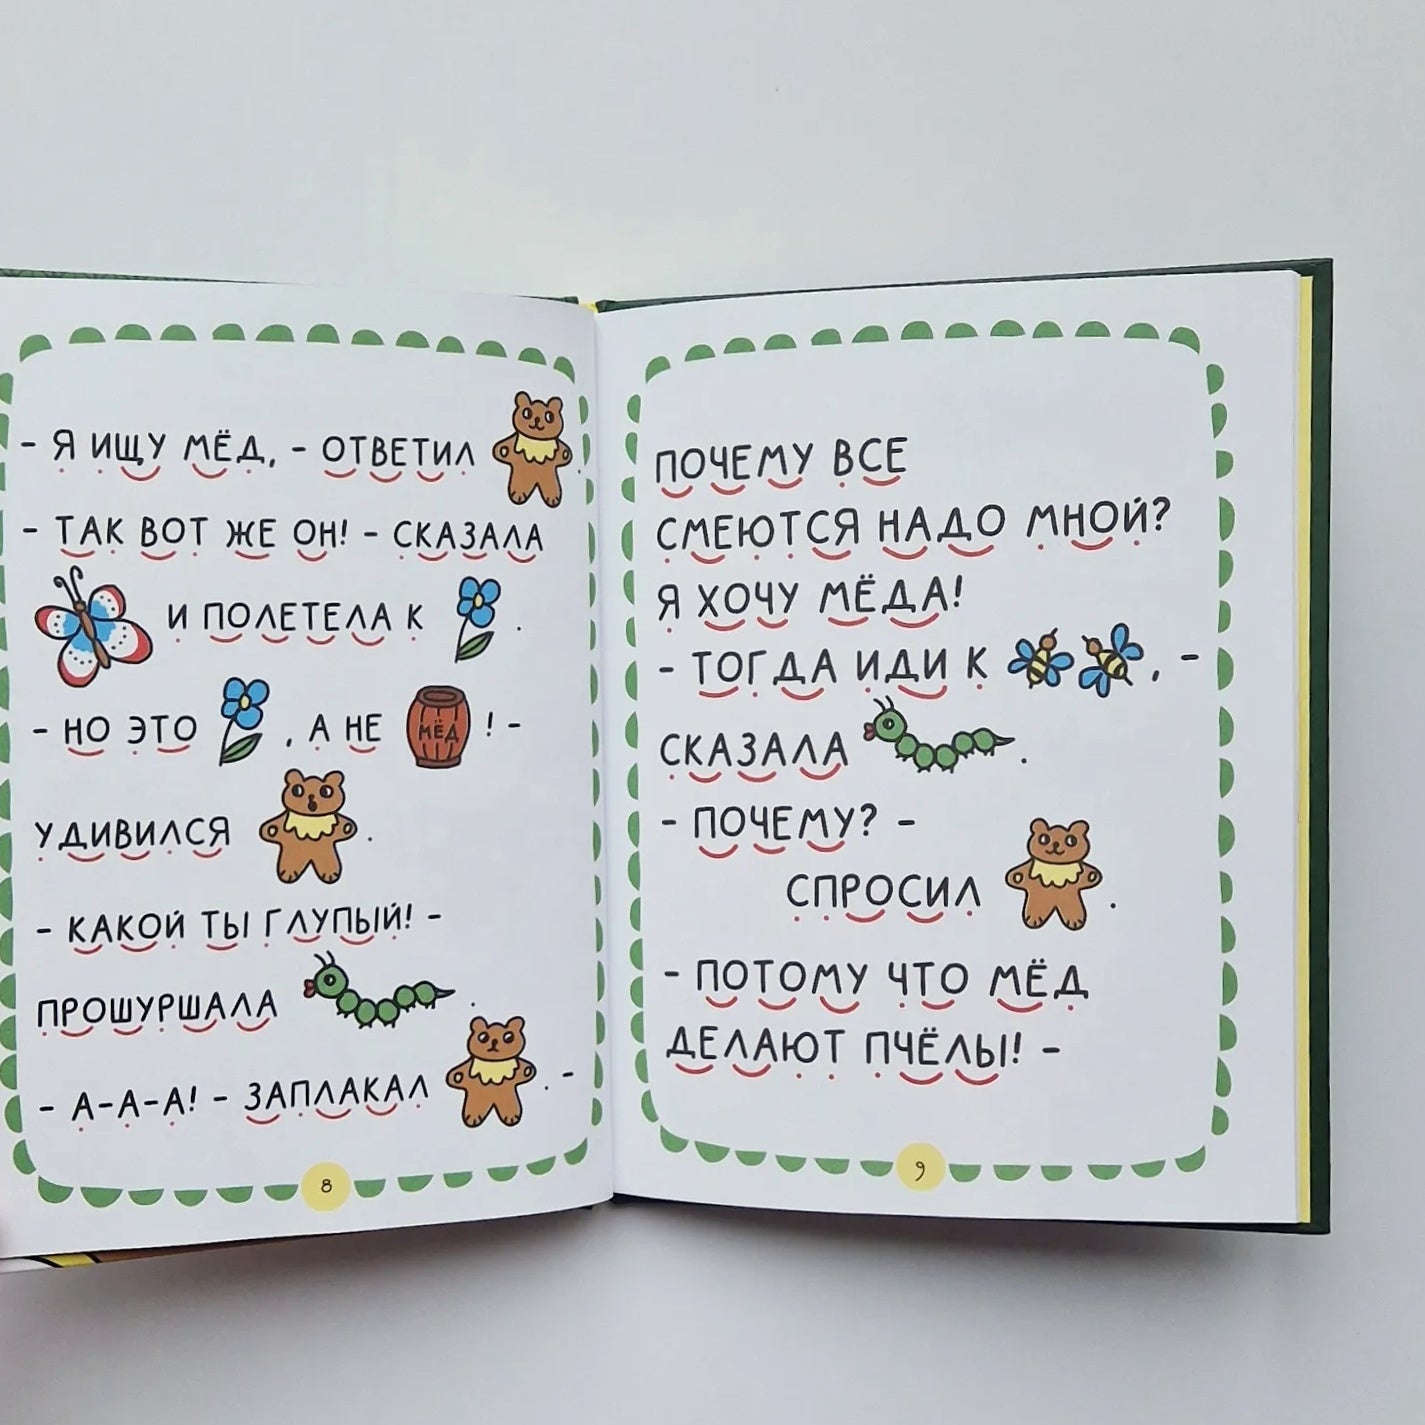 - Я ИЩУ МЁД, - ОТВЕТИЛ .
- ТАК ВОТ ЖЕ ОН! - СКАЗАЛА
И ПОЛЕТЕЛА К .
- НО ЭТО , А НЕ МЁД ! -
УДИВИЛСЯ .
- КАКОЙ ТЫ ГЛУПЫЙ! -
ПРОШУРШАЛА .
- А-А-А! - ЗАПЛАКАЛ . -
8
ПОЧЕМУ ВСЕ
СМЕЮТСЯ НАДО МНОЙ?
Я ХОЧУ МЁДА!
- ТОГДА ИДИ К , -
СКАЗАЛА .
- ПОЧЕМУ? -
СПРОСИЛ .
- ПОТОМУ ЧТО МЁД
ДЕЛАЮТ ПЧЁЛЫ! -
9